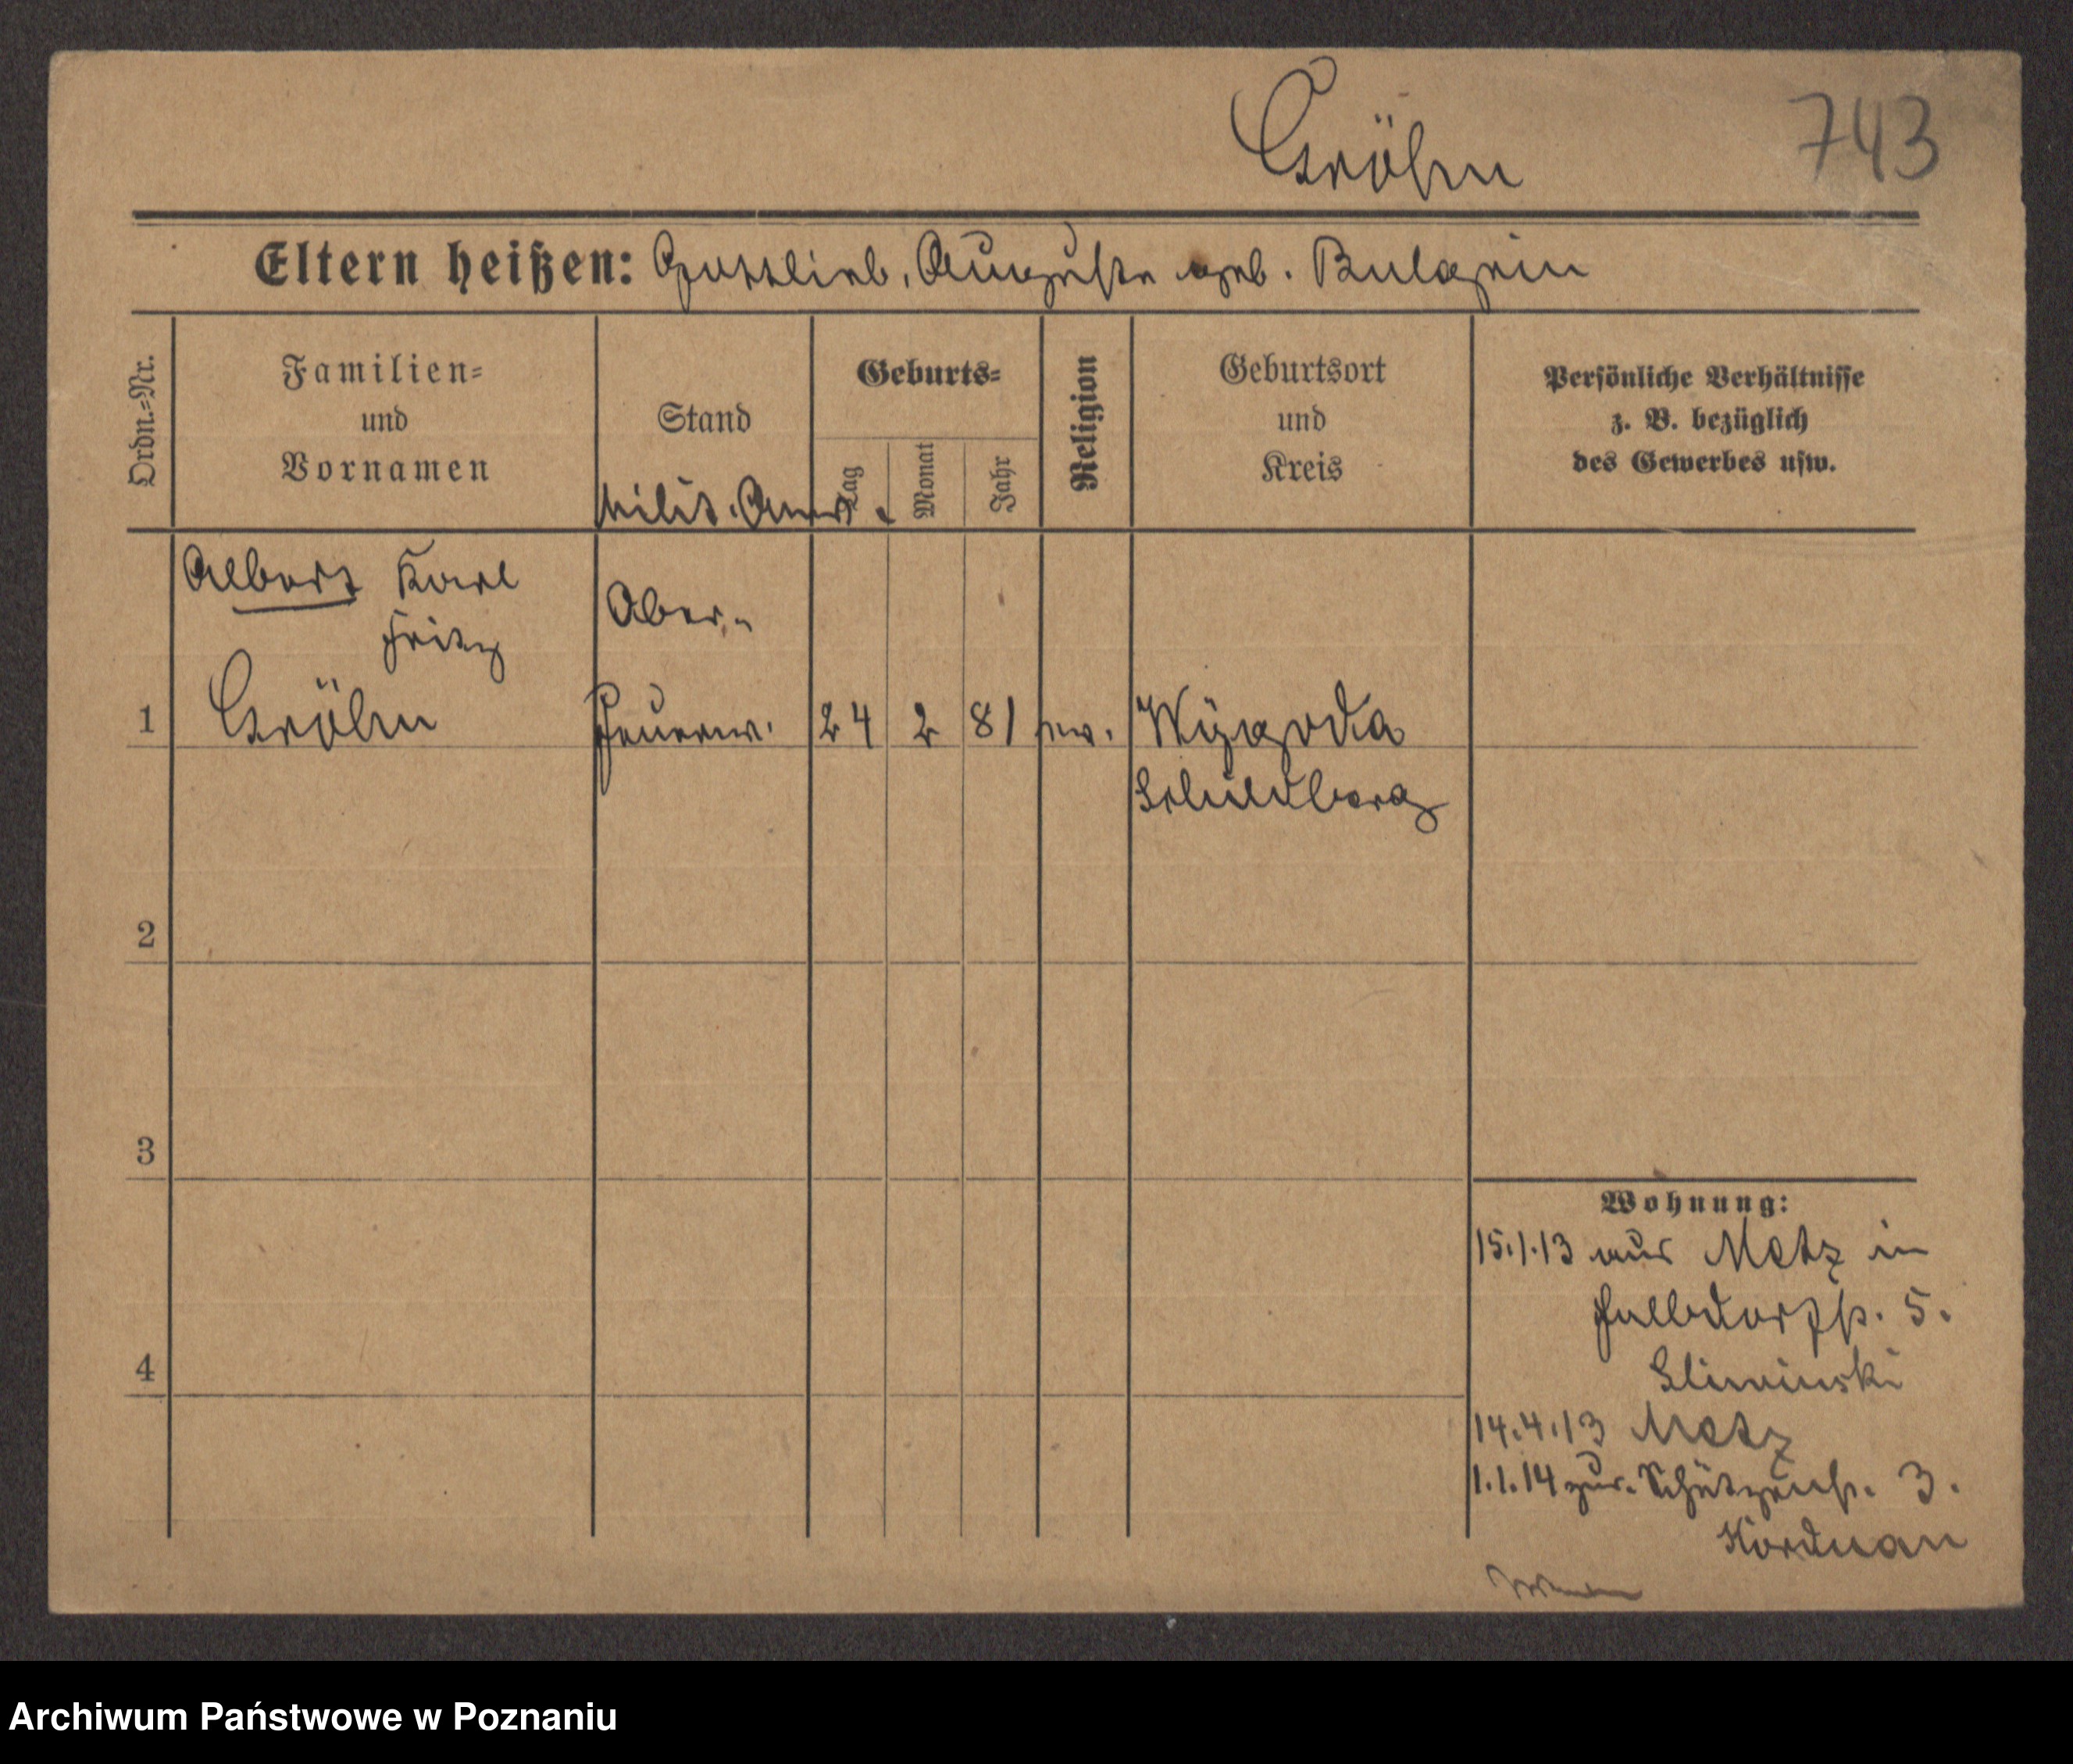 Gröhn
743
Eltern heißen: Gottlieb, Auguste geb. Bulgrin
Ordn.=Nr.
Familien=
und
Vornamen
Stand
Milit. Anw.
Geburts=
Tag
Monat
Jahr
Religion
Geburtsort
und
Kreis
Persönliche Verhältnisse
z. B. bezüglich
des Gewerbes usw.
Albert Karl
Fritz
1 Gröhn
Ober-
Feuerw. 24 2 81 ev. Wygoda
Schildberg
2
3
4
Wohnung:
15.1.13 aus Metz in
5.
Sliwinski
14.4.13 Metz
1.1.14 zur. Schützenstr. 3.
Korduan
Archiwum Państwowe w Poznaniu